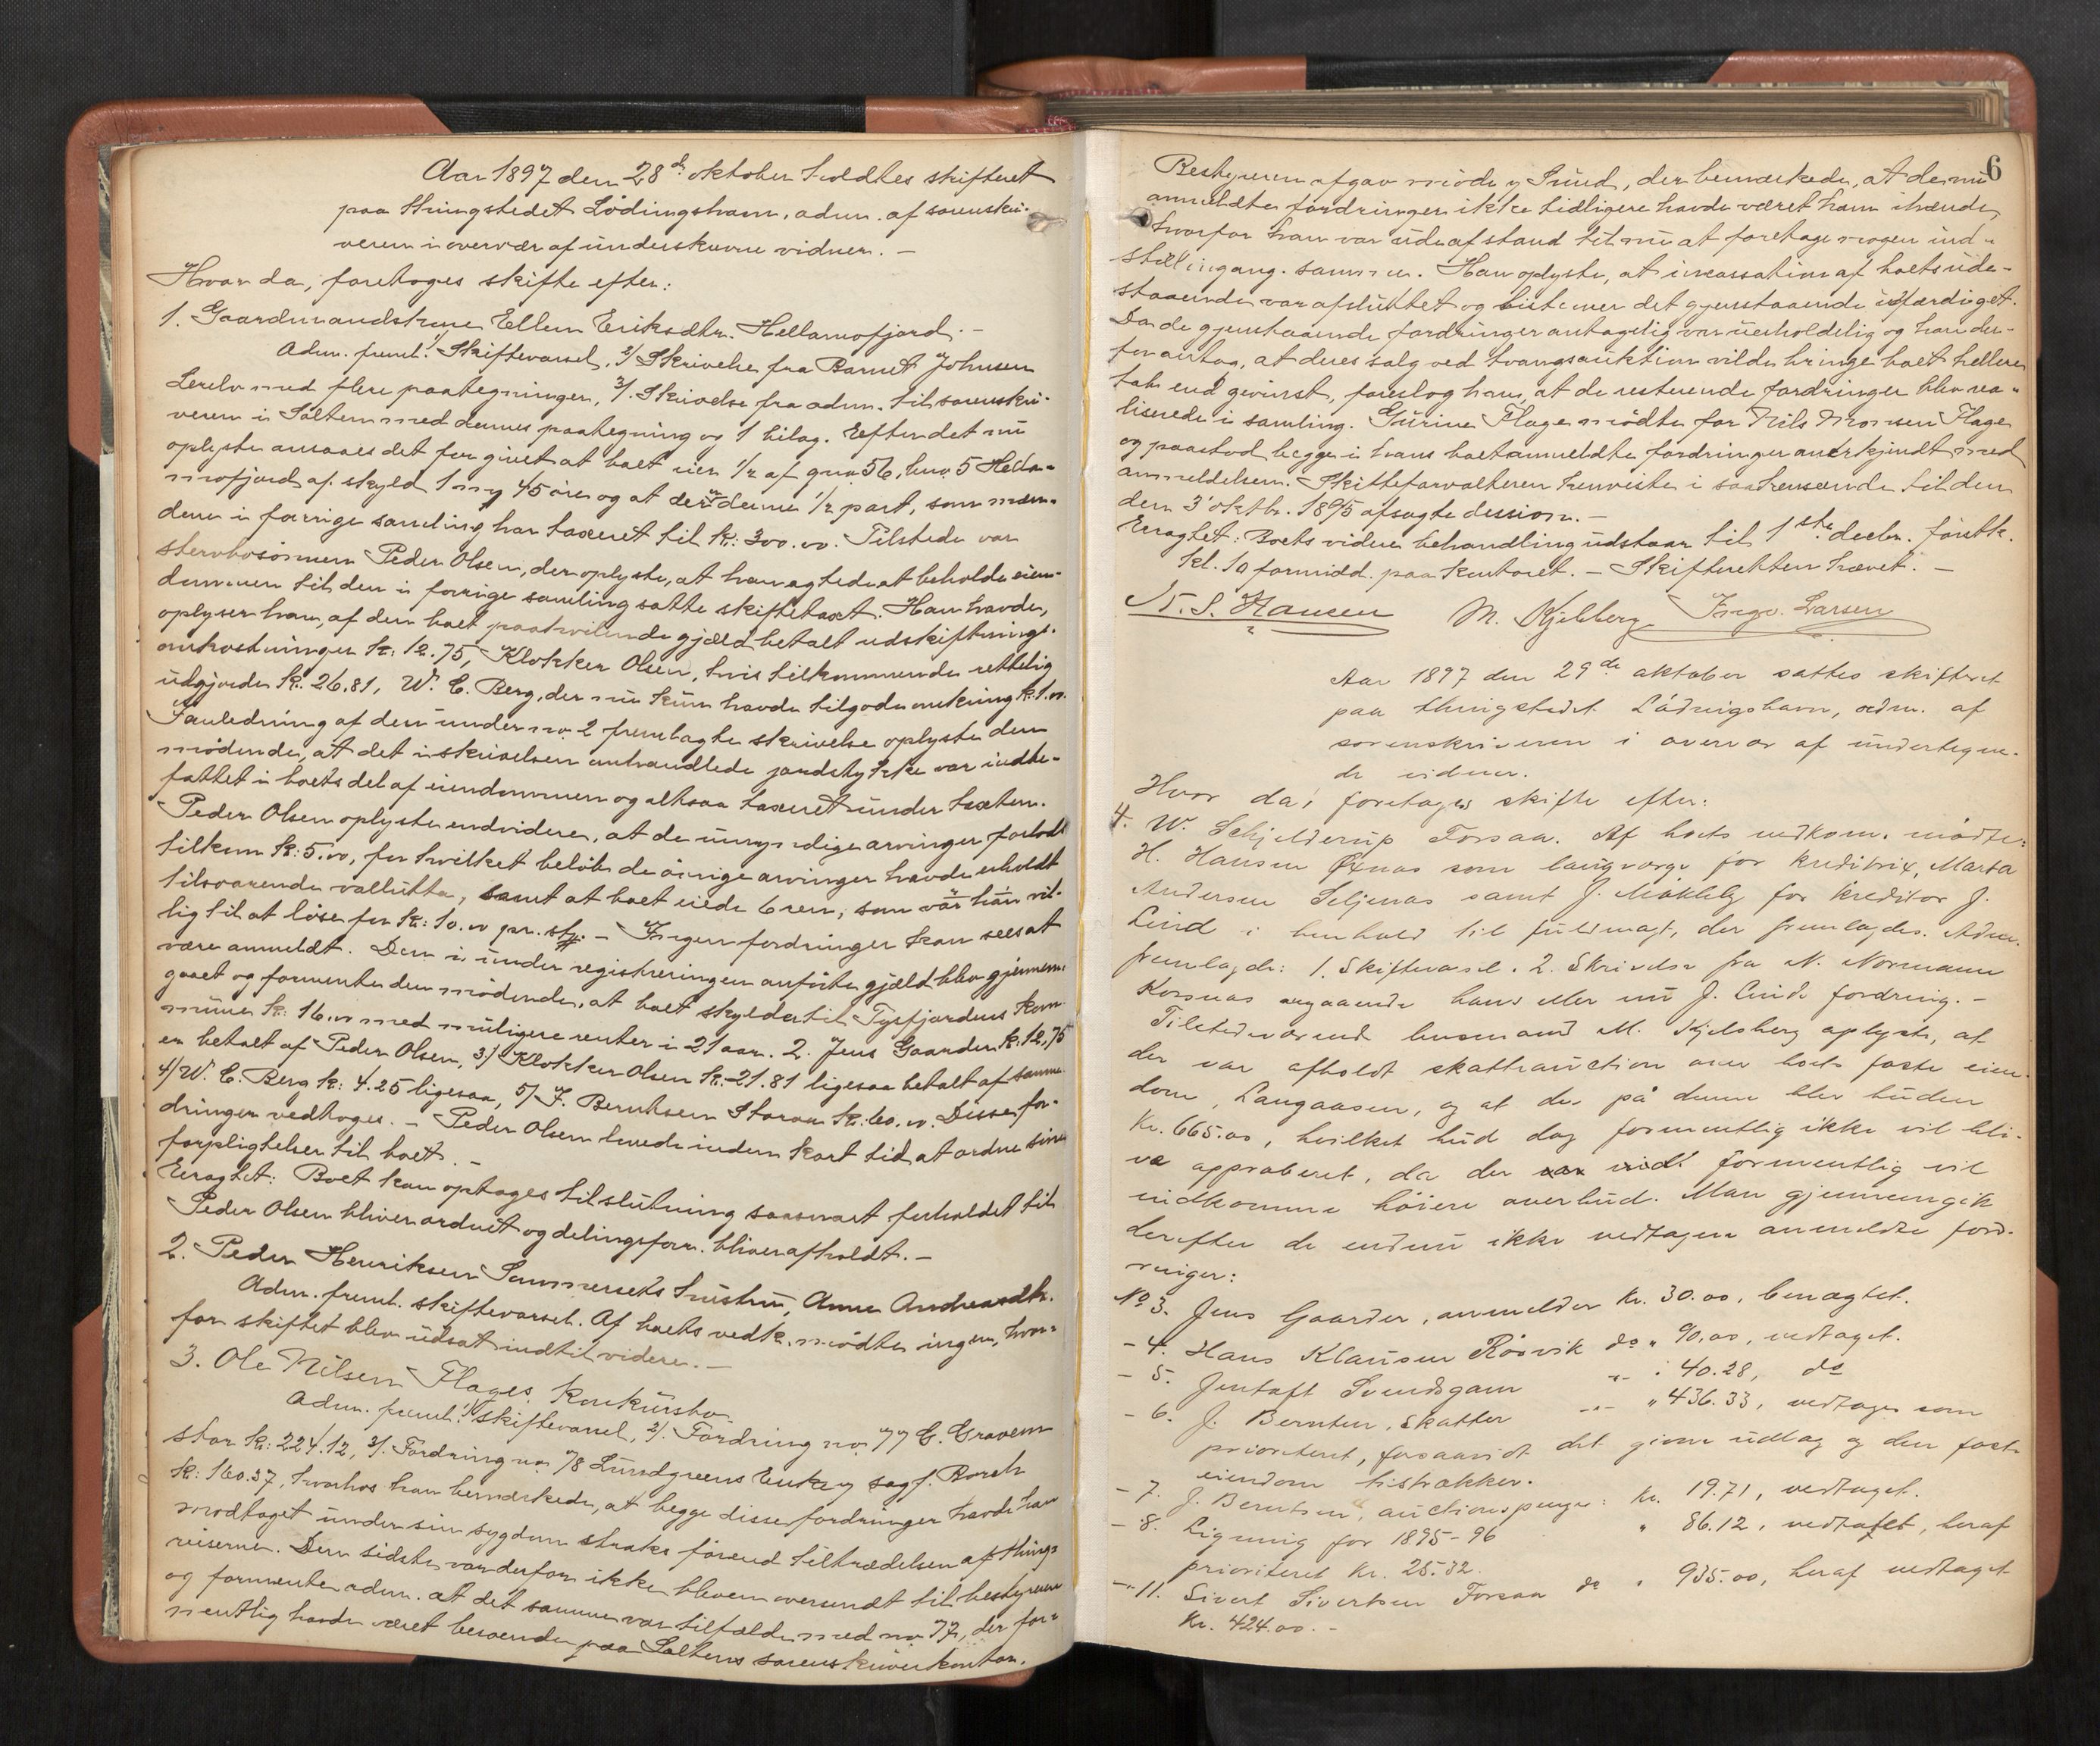 Aar 1897 den 28de oktober holdtes skifteret
paa thingstedet Lødingshavn, adm. af sorenskri-
veren i overvær af underskevne vidner. –
Hvor da, foretoges skifte efter:
1. Gaardmandskone Ellen Eriksdtr. Hellamofjord. –
Adm. freml. 1/ Skiftevarsel, 2/ Skrivelse fra Barnet Johnsen
Lerelv med flere paategninger, 3/. Skrivelse fra adm. til sorenskri-
veren i Salten med dennes paategning og 1 bilag. Efter det nu
oplyste ansaaes det for givet at boet eier 1/2 af gno 56, bno 5 Hella-
mofjord af skyld 1 m 45 øre og at det er denne 1/2 part, som mæn-
dene i forrige samling har taxeret til kr: 300.00. Tilstede var
stervbosønnen Peder Olsen, der oplyste, at han agtede at beholde eien-
dommen til den i forrige samling satte skiftetaxt. Han havde,
oplyser han, af den boet paahvilende gjæld betalt udskiftnings-
omkostninger kr: 12.75, Klokker Olsen, hvis tilkommende rettelig
udgjorde kr. 26.81, W. C. Berg, der nu kun havde tilgode omkring kr. 1.00.
I anledning af den under no. 2 fremlagte skrivelse oplyste den
mødende, at det i skrivelsen omhandlede jordstykke var indbe-
fattet i boets del af eiendommen og altsaa taxeret under taxten.
Peder Olsen oplyste endvidere, at de umyndige arvinger
tilkom kr: 5.00, for hvilket beløb de øvrige arvinger havde erholdt
tilsvarende vallutta, samt at boet eiede 6 ren, som var han vil-
lig til at løse for kr: 10.00 pr. stk. – Ingen fordringer kan sees at
være anmeldt. Den i under registreringen anførte gjæld blev gjennem-
gaaet og formente den mødende, at boet skylder til Tysfjordens kom-
mune kr: 16.00 med muligere renter i 21 aar. 2. Jens Gaarder kr. 12,75
er betalt af Peder Olsen, 3/ Klokker Olsen kr. 21.81 ligesaa betalt af samme
4/ W. C. Berg kr: 4.25 ligesaa, 5/ J. Berntsen Storaa kr: 60.00. Disse for-
dringer vedtoges. – Peder Olsen lovede inden kort tid at ordne sine
forpligtelser til boet. –
Eragtet: Boet kan optages til slutning saasnart forholdet til
Peder Olsen bliver ordnet og delingsforr. bliver afholdt. –
2. Peder Henriksen Sommersets hustru, Anne Andreasdtr.
Adm. freml. skiftevarsel. Af boets vedk. mødte ingen, hvor-
for skiftet blev udsat indtil videre. –
3. Ole Nilsen Flages Konkursbo.
Adm. freml. 1/ skiftevarsel, 2/. Fordring no. 77 C. Gravem
stor kr: 224.12, 3/. Fordring no. 78 Lundgreens Enke ved sagf. Borch
kr: 160.37, hvorhos han bemærkede, at begge disse fordringer havde han
modtaget under sin sygdom straks førend tiltrædelsen af thing-
reiserne. Den sidste var derfor ikke bleven oversendt til bestyreren
og formente adm. at det samme var tilfælde med no 77, der for-
mentlig havde været beroende paa Saltens sorenskriverkontor.
6
Bestyreren afgav møde ved Sund, der bemærkede, at de nu
anmeldte fordringer ikke tidligere havde været ham ihænde,
hvorfor han var ude af stand til nu at foretage nogen ind-
stilling ang. samme. Han oplyste, at incassation af boets ude-
staaende var afsluttet og liste over det gjenstaaende udfærdiget.
Da de gjenstaaende fordringer antagelig var uerholdelig og han der-
for antog, at deres salg ved tvangsauktion vilde bringe boet hellere
tab end gevinst, foreslog han, at de resterende fordringer blev rea-
liserede i samling. Gurine Flage mødte for Nils Monsen Flage
og paastod begge i hans boet anmeldte fordringer anerkjendt med
anmeldelsen. Skifteforvalteren henviste i saahenseende til den
den 3' oktbr. 1895 afsagte decision. –
Eragtet: Boets videre behandling udstaar til 1ste decbr. førstk.
kl. 10 formidd. paa kontoret. – Skifteretten hævet. –
N. S. Hansen M. Kjelberg Ingv. Larsen
Aar 1897 den 29de oktober sattes skifteret
paa thingstedet Lødingshavn, adm. af
sorenskriveren i overvær af undertegne-
de vidner.
Hvor da, foretages skifte efter:
4. W. Schjelderup Forsaa. Af boets vedkom. mødte:
H. Hansen Øxnes som laugværge for kreditrix, Marta
Andersen Seljenas samt J. Mokkelb for kreditor J.
Lind i henhold til fuldmagt, der fremlagdes. Adm.
fremlagde: 1. Skiftevarsel. 2. Skrivelse fra N. Normann
Korsnæs angaaende hans eller nu J. Linds fordring. –
Tilstedeværende lensmand M. Kjelsberg oplyste, at
der var afholdt skatteauction over boets faste eien-
dom, Langaasen, og at der på denne blev buden
Kr. 665.00, hvilket bud dog formentlig ikke vil bli-
ve approberet, da der formentlig vil
indkomme høiere overbud. Man gjennemgik
derefter de endnu ikke vedtagne anmeldte ford-
ringer:
No 3. Jens Gaarder, anmelder Kr. 30.00, benægtet.
– 4. Hans Klausen Røsvik do " 90.00, vedtaget.
– 5. Jentoft Svendsgam –"– " 40.28, do
– 6. J. Berntsen, Skatter –"– " 436.33, vedtages som
prioriteret, forsaavidt det givne udlæg og den faste
eiendom tilstrækker.
– 7. J. Berntsen, auctionspenge: Kr. 19.71, vedtaget.
– 8. Ligning for 1895–96 " 86.12, vedtaget, heraf
prioriteret Kr. 25.32.
–"– 11. Sivert Sivertsen Forsaa do " 935.00, heraf vedtaget
Kr. 424.00. –